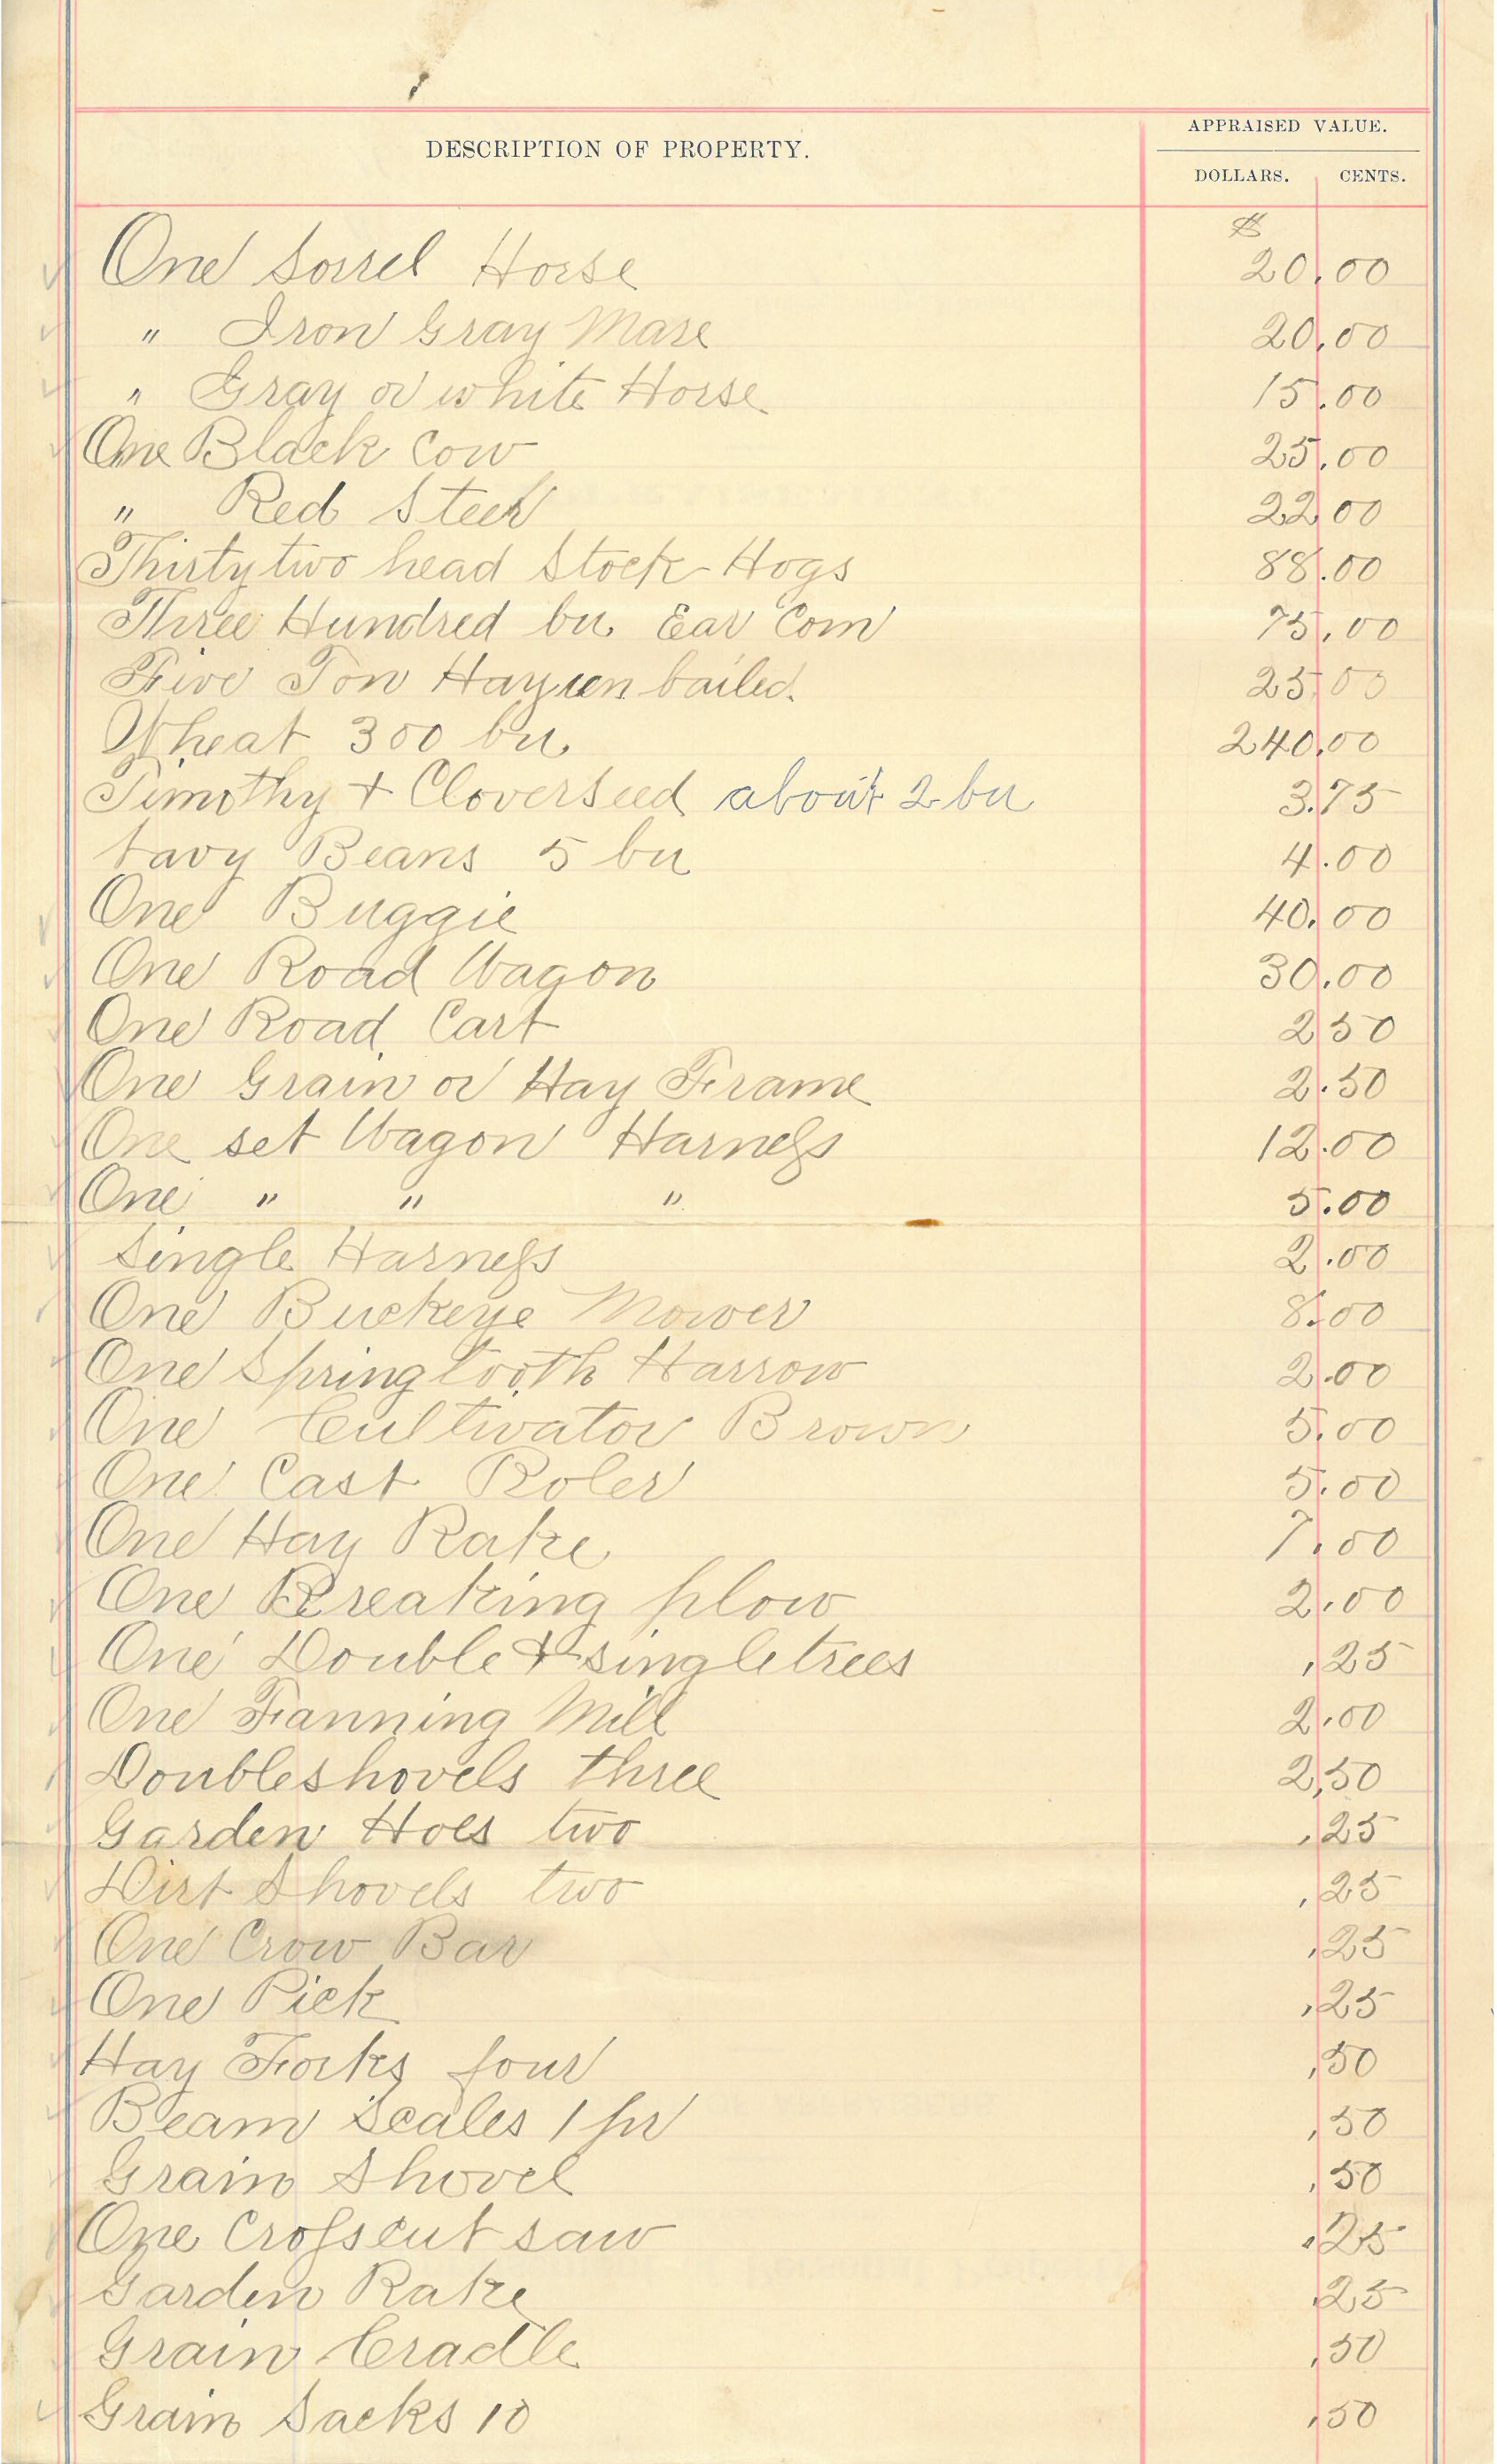 DESCRIPTION OF PROPERTY.
APPRAISED VALUE.
DOLLARS. CENTS.
$
One Sorrel Horse 20.00
" Iron Gray Mare 20.00
" Gray or white Horse 15.00
One Black Cow 25.00
" Red Steer 22 00
Thirtytwo head Stock Hogs 88.00
Three Hundred bu Ear Corn 75.00
Five Ton Hay un bailed. 25.00
Wheat 300 bu 240.00
Timothy + Cloverseed about 2 bu 3.75
Navy Beans 5 bu 4.00
One Buggie 40.00
One Road Wagon 30.00
One Road Cart 2 50
One Grain or Hay Frame 2.50
One set Wagon Harness 12.00
One " " " 5.00
Single Harness 2.00
One Buckeye Mower 8.00
One Springtooth Harrow 2.00
One Cultivator Brown 5.00
One Cast Roler 5.00
One Hay Rake 7.00
One Breaking plow 2.00
One Double & singletrees .25
One Fanning Mill 2.00
Doubleshovels three 2,50
Garden Hoes two .25
Dirt Shovels two .25
One Crow Bar .25
One Pick .25
Hay Forks four .50
Beam Scales 1 pr .50
Grain Shovel .50
One Crosscut saw .25
Garden Rake .25
Grain Cradle .50
Grain Sacks 10 .50